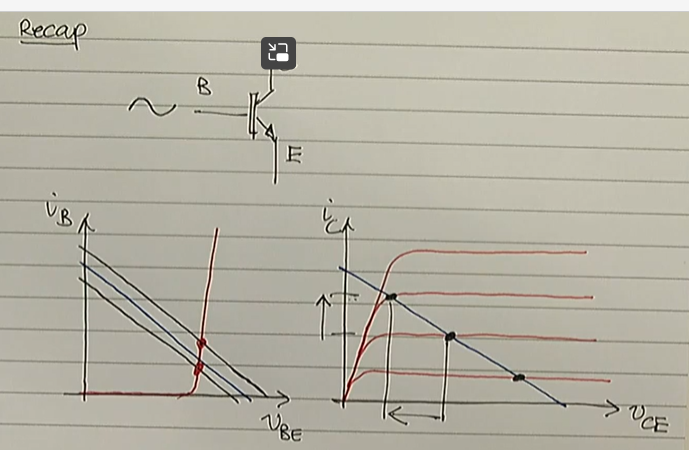 Recap
B
E
i_B
v_BE
i_C
v_CE